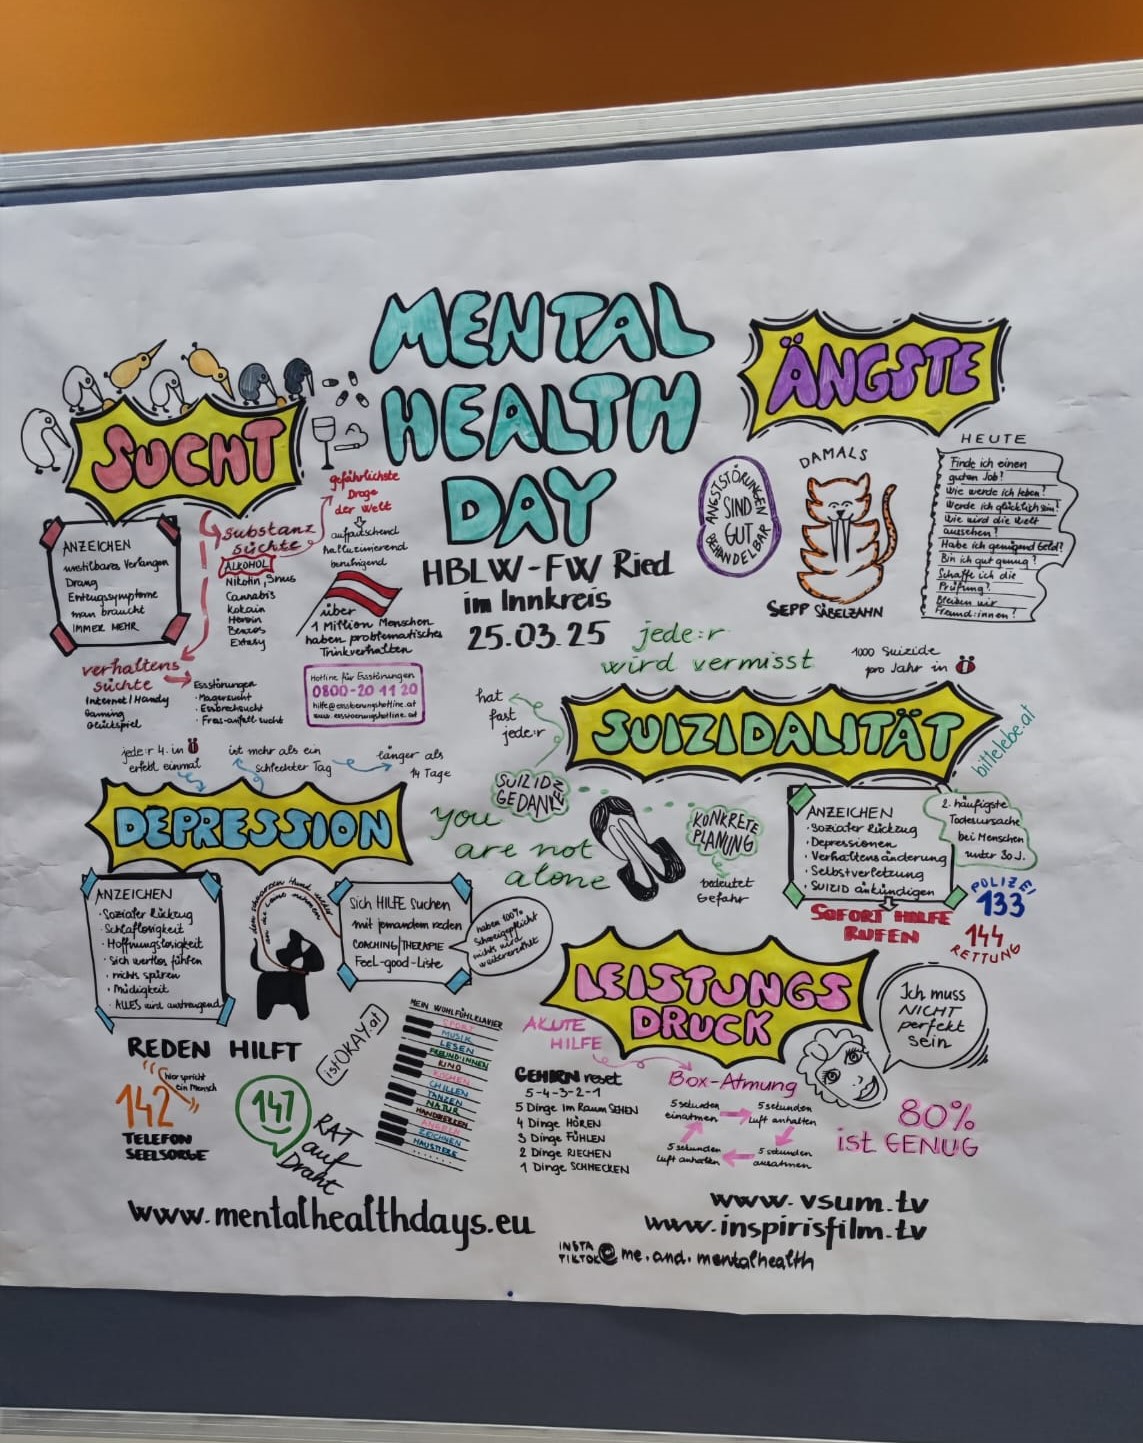 MENTAL
HEALTH
DAY
HBLW-FW Ried
im Innkreis
25.03.25
SUCHT
ANZEICHEN
unstillbares Verlangen
Drang
Entzugssymptome
man braucht
IMMER MEHR
substanz
süchte
ALKOHOL
Nikotin, Snus
Cannabis
Kokain
Heroin
Benzos
Extasy
gefährlichste
Droge
der Welt
aufputschend
halluzinierend
beruhigend
über
1 Million Menschen
haben problematisches
Trinkverhalten
verhaltens
süchte
Internet/Handy
Gaming
Glückspiel
Essstörungen
· Magersucht
· Essbrechsucht
· Fress-anfall sucht
Hotline für Essstörungen
0800-20 11 20
hilfe@essstoerungshotline.at
www.essstoerungshotline.at
ÄNGSTE
ANGSTSTÖRUNGEN
SIND
GUT
BEHANDELBAR
DAMALS
SEPP SÄBELZAHN
HEUTE
Finde ich einen
guten Job?
Wie werde ich leben?
Werde ich glücklich sein?
Wie wird die Welt
aussehen?
Habe ich genügend Geld?
Bin ich gut genug?
Schaffe ich die
Prüfung?
Bleiben wir
Freund:innen?
jede:r
wird vermisst
1000 Suizide
pro Jahr in Ö
SUIZIDALITÄT
bittelebe.at
hat
fast
jede:r
SUIZID
GEDANKEN
KONKRETE
PLANUNG
bedeutet
Gefahr
you
are not
alone
ANZEICHEN
· Sozialer Rückzug
· Depressionen
· Verhaltensänderung
· Selbstverletzung
· SUIZID ankündigen
2. häufigste
Todesursache
bei Menschen
unter 30 J.
SOFORT HILFE
RUFEN
POLIZEI
133
144
RETTUNG
jede:r 4. in Ö
erlebt einmal
ist mehr als ein
schlechter Tag
länger als
14 Tage
DEPRESSION
ANZEICHEN
· Sozialer Rückzug
· Schlaflosigkeit
· Hoffnungslosigkeit
· Sich wertlos fühlen
· nichts spüren
· Müdigkeit
· ALLES wird anstrengend
den schwarzen Hund
an die Leine nehmen
Sich HILFE suchen
mit jemandem reden
COACHING/THERAPIE
Feel-good-Liste
haben 100%
Schweigepflicht
nichts wird
weitererzählt
REDEN HILFT
Hier spricht
ein Mensch
142
TELEFON
SEELSORGE
147
RAT
auf
Draht
istOKAY.at
MEIN WOHLFÜHLKLAVIER
SPORT
MUSIK
LESEN
FREUND:INNEN
KINO
KOCHEN
CHILLEN
TANZEN
NATUR
HANDWERKEN
ANGELN
ZEICHNEN
HAUSTIERE
......
LEISTUNGS
DRUCK
AKUTE
HILFE
GEHIRN reset
5-4-3-2-1
5 Dinge im Raum SEHEN
4 Dinge HÖREN
3 Dinge FÜHLEN
2 Dinge RIECHEN
1 Dinge SCHMECKEN
Box-Atmung
5 sekunden
einatmen
5 sekunden
Luft anhalten
5 sekunden
ausatmen
5 sekunden
Luft anhalten
Ich muss
NICHT
perfekt
sein
80%
ist GENUG
www.mentalhealthdays.eu
www.vsum.tv
www.inspirisfilm.tv
INSTA
TIKTOK @ me.and.mentalhealth